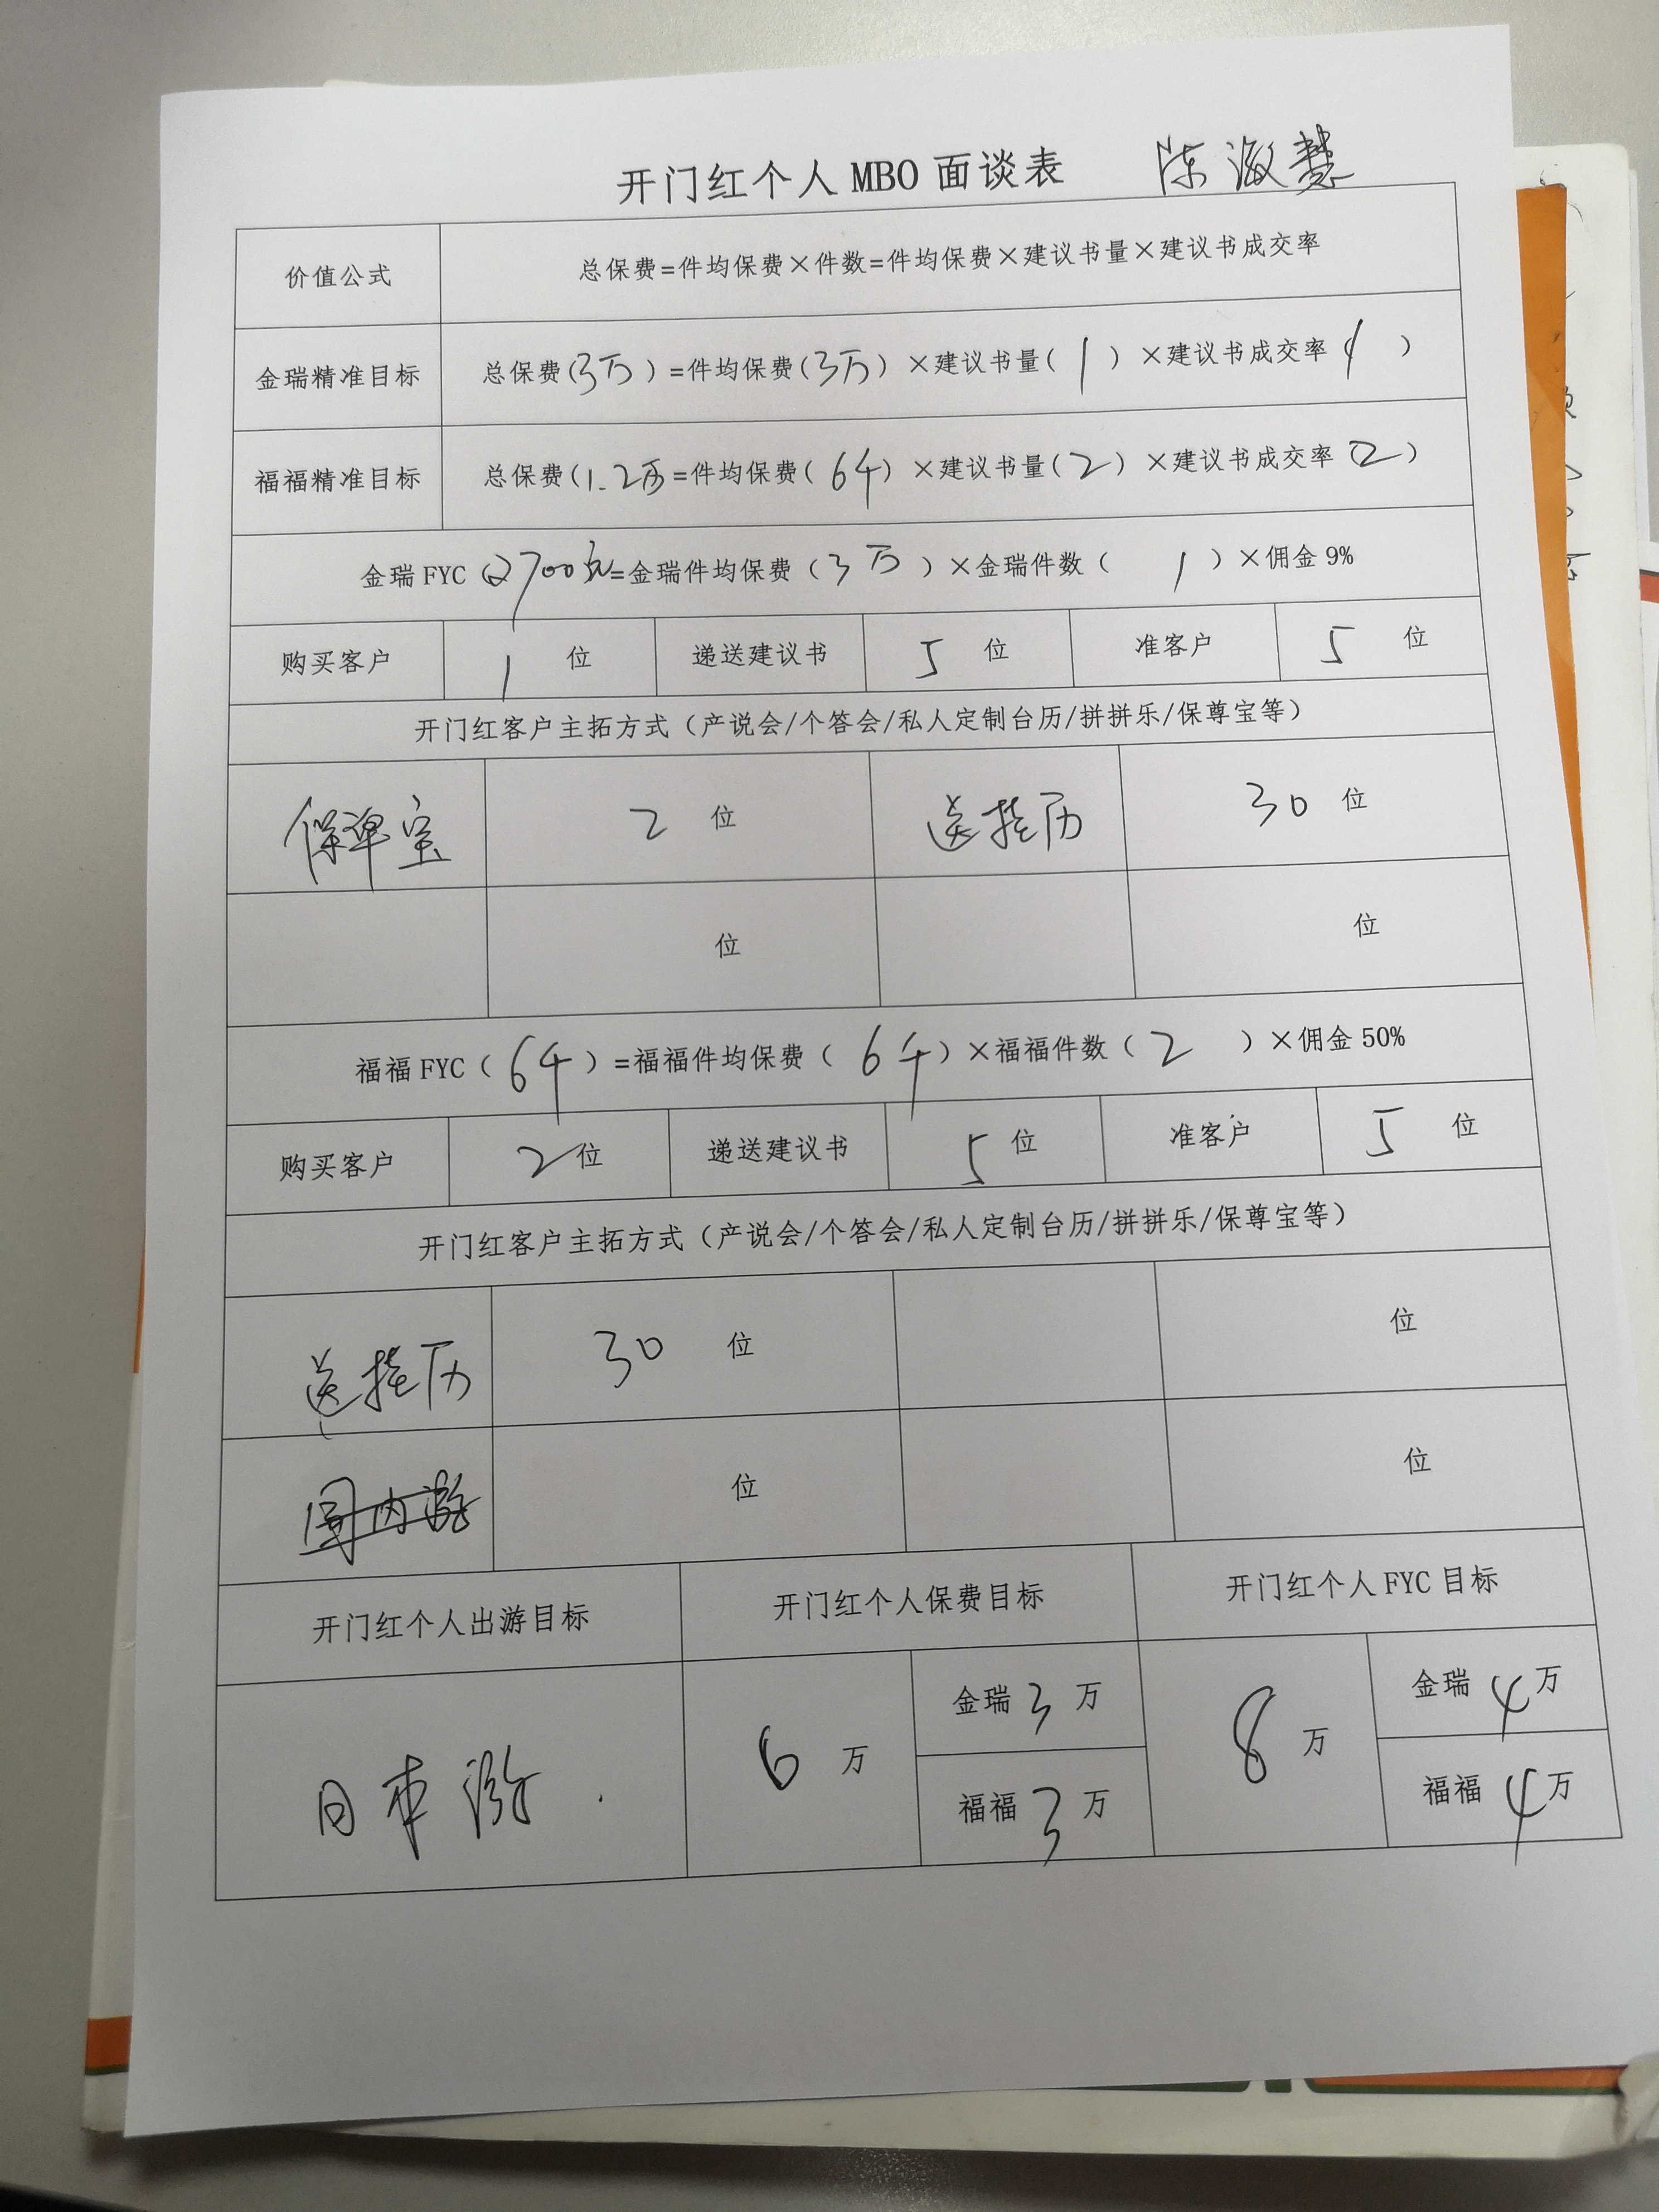 开门红个人 MBO 面谈表 陈淑慧
价值公式 总保费=件均保费×件数=件均保费×建议书量×建议书成交率
金瑞精准目标 总保费(3万)=件均保费(3万)×建议书量(1)×建议书成交率(1)
福福精准目标 总保费(1.2万=件均保费(6千)×建议书量(2)×建议书成交率(2)
金瑞 FYC(2700元=金瑞件均保费(3万)×金瑞件数(1)×佣金 9%
购买客户 1 位 递送建议书 5 位 准客户 5 位
开门红客户主拓方式（产说会/个答会/私人定制台历/拼拼乐/保尊宝等）
保单宝 2 位 送挂历 30 位
位 位
福福 FYC(6千)=福福件均保费(6千)×福福件数(2)×佣金 50%
购买客户 2 位 递送建议书 5 位 准客户 5 位
开门红客户主拓方式（产说会/个答会/私人定制台历/拼拼乐/保尊宝等）
送挂历 30 位 位
国内游 位 位
开门红个人出游目标 开门红个人保费目标 开门红个人 FYC 目标
日本游. 6 万 金瑞 3 万 8 万 金瑞 4 万
福福 3 万 福福 4 万